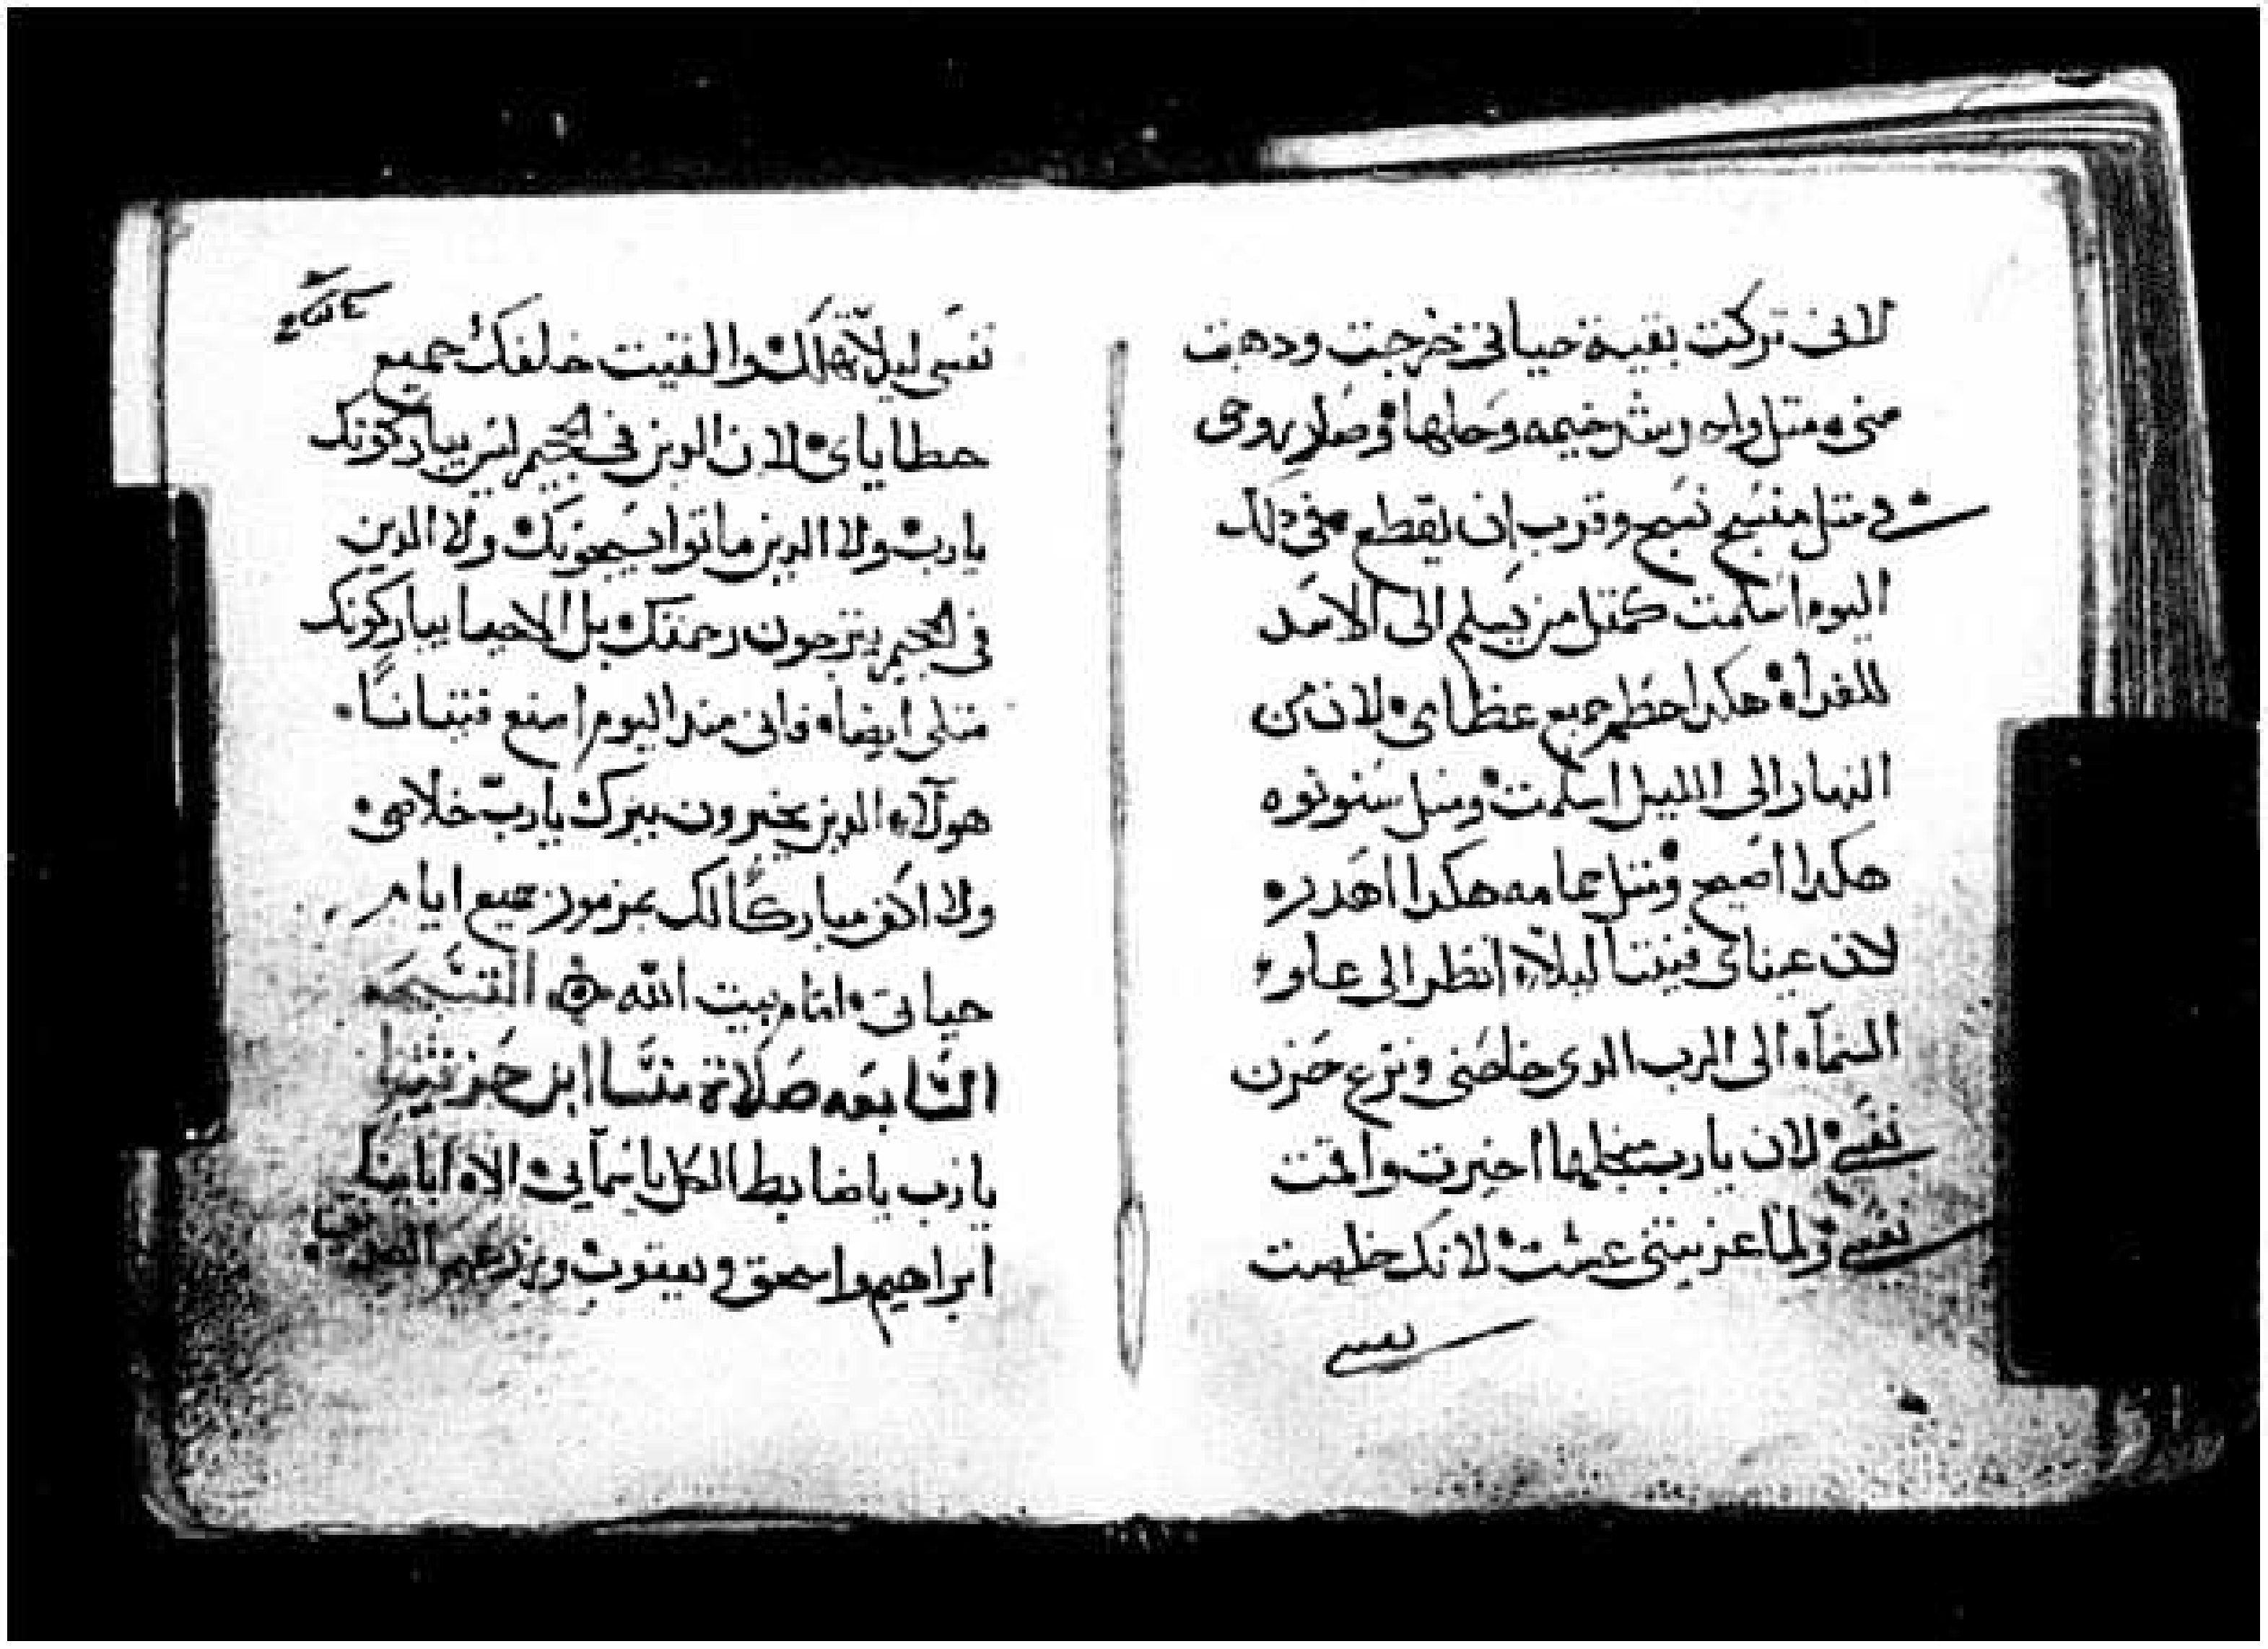 لانى تركت بقية حياتى خرجت ودهبت
منى مثل واحد رشد خيمه وحلها وصار روحى
فى مثل منسج نسج وقرب ان يقطع فى دلك
اليوم اسلمت كمثل من يسلم الى الاسد
للغداه هكدا حطم جميع عظامى لان من
النهار الى الليل اسلمت ومثل سنونوه
هكدا اصيح ومثل حمامه هكدا اهدر
لان عيناى فنيتا ليلاء انظر الى علو
السمآء الى الرب الدى خلصنى ونزع حزن
نفسى لان يارب اخبرت واقمت
نفسى ولما عزيتنى عشت لانك خلصت
نفسى
نفسى ليلا تهلك والقيت خلفك جميع
خطاياى لان الدين فى الجحيم ليس يباركونك
يارب ولا الدين ماتوا يسبحونك ولا الدين
فى الجحيم يترجون رحمتك بل الاحيا يباركونك
مثلى ايضا فانى مند اليوم اصنع فتيانا
هولاء الدين يخبرون ببرك يارب خلاصى
ولا اكف مباركا لك بمزمور جميع ايام
حياتى امام بيت الله التسبحه
السابعه صلاة منسا ابن حزقيا
يارب يا ضابط الكل يا سمآيى الاه ابآينا
ابراهيم واسحق ويعقوب وزرعهم الصديق